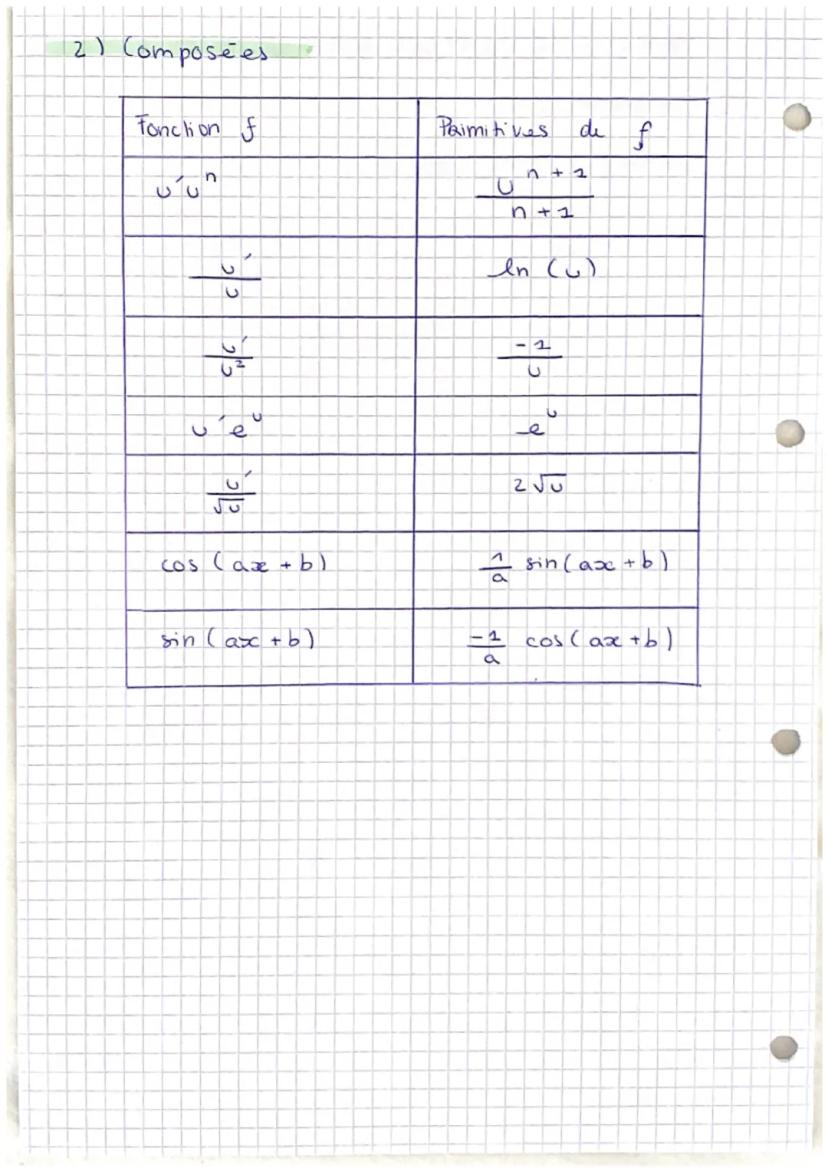 2) Composées
Fonction f | Primitives de f
u'uⁿ | uⁿ⁺¹/(n+1)
u'/u | ln (u)
u'/u² | -1/u
u'eᵘ | eᵘ
u'/√u | 2√u
cos (ax + b) | 1/a sin(ax + b)
sin (ax + b) | -1/a cos(ax + b)